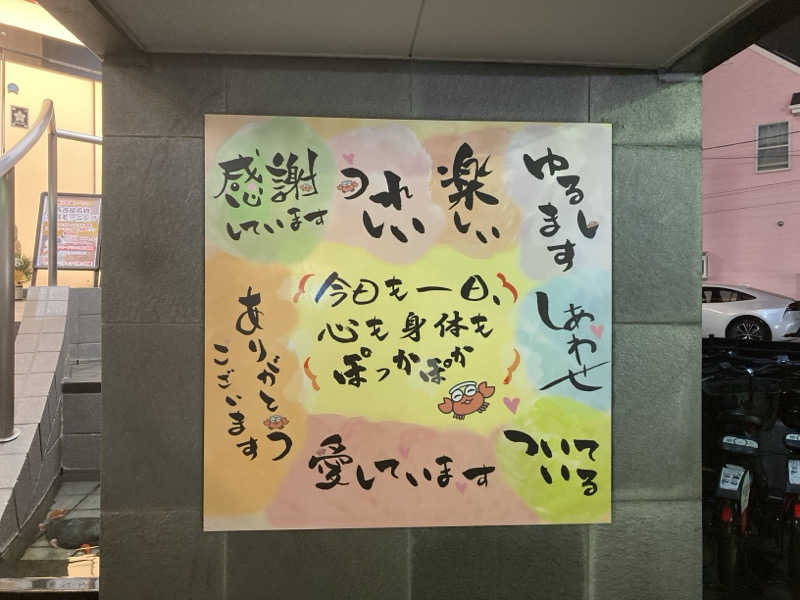 感謝
しています
うれしい
楽しい
ゆるし
ます
今日も一日、
心も身体も
ぽっかぽか
しあわせ
ありがとう
ございます
愛しています
ついている